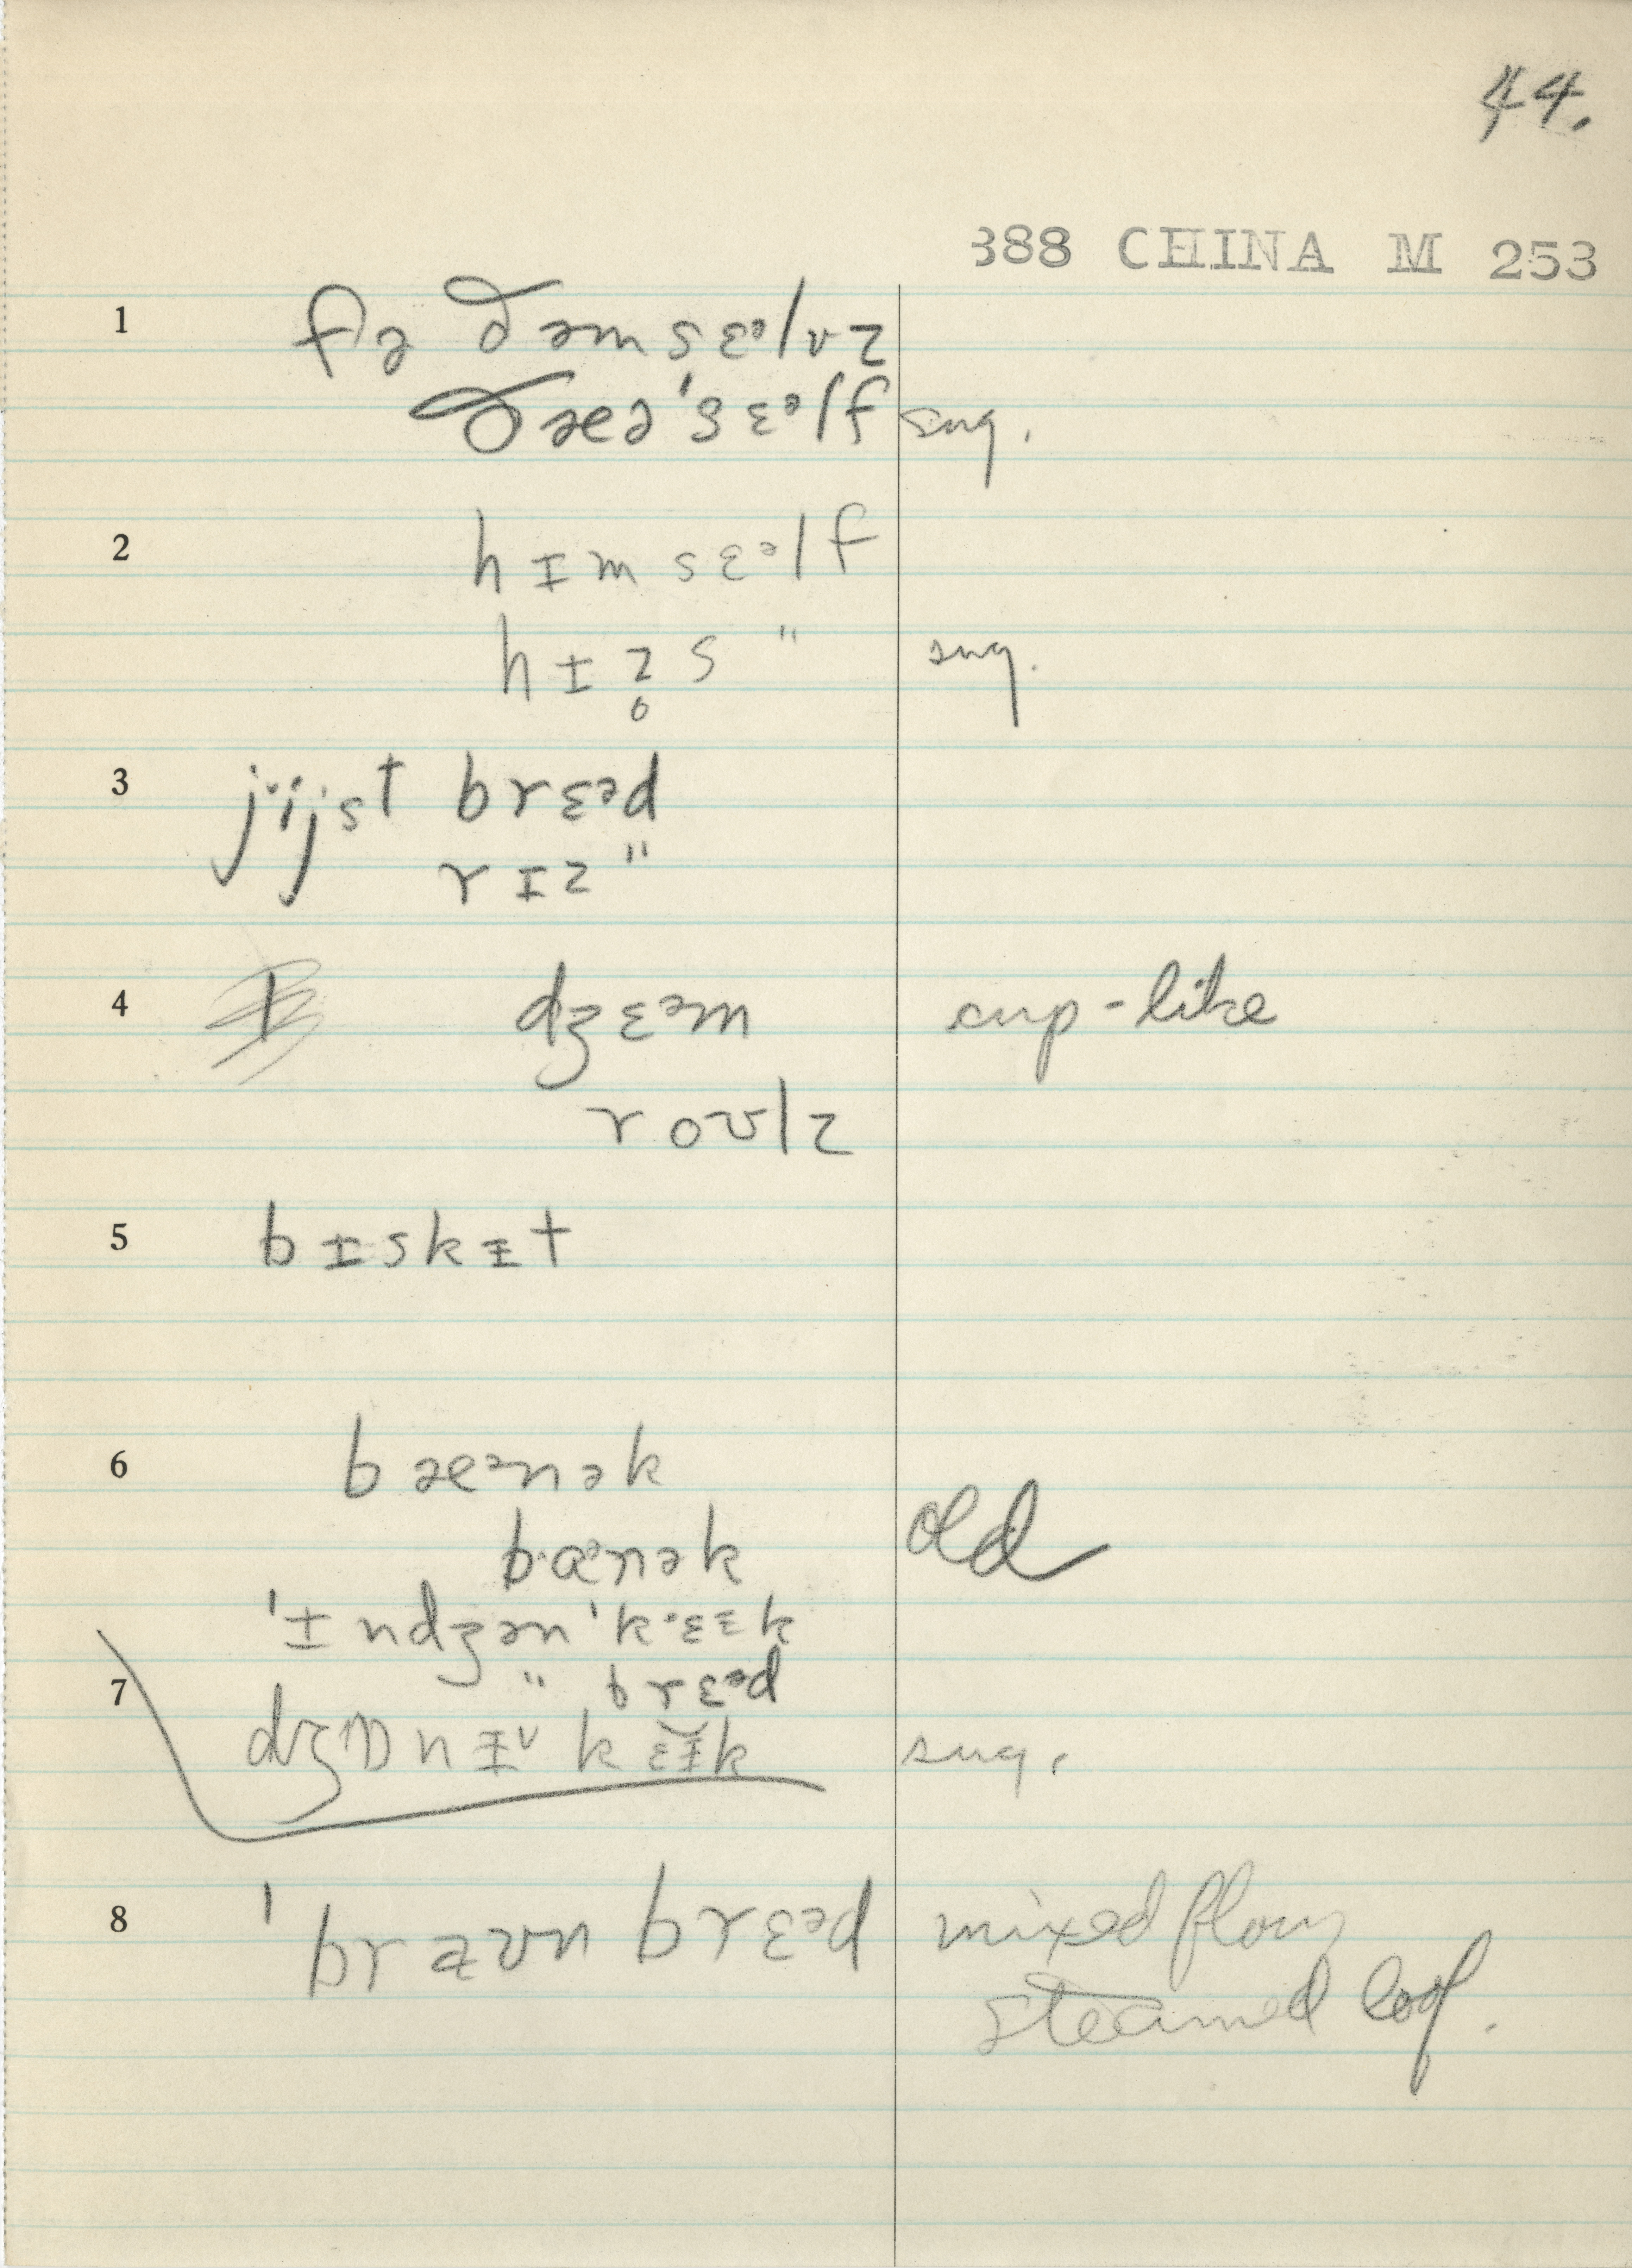 44.
388 CHINA M 253
1 fə ðəmsɛᵊlvz
ðæə'sɛᵊlf sug.
2 hɪmsɛᵊlf
hɪz̥s " sug.
3 jijst brɛᵊd
rɪz "
4 dʒɛᵊm cup-like
roʊlz
5 bɪskɪt
6 bæᵊnək
banək old
'ɪndʒən'kɛɪk
7 " brɛᵊd
dʒɒnɪ kɛɪk sug.
8 'braʊn brɛᵊd mixed flour
steamed loaf.